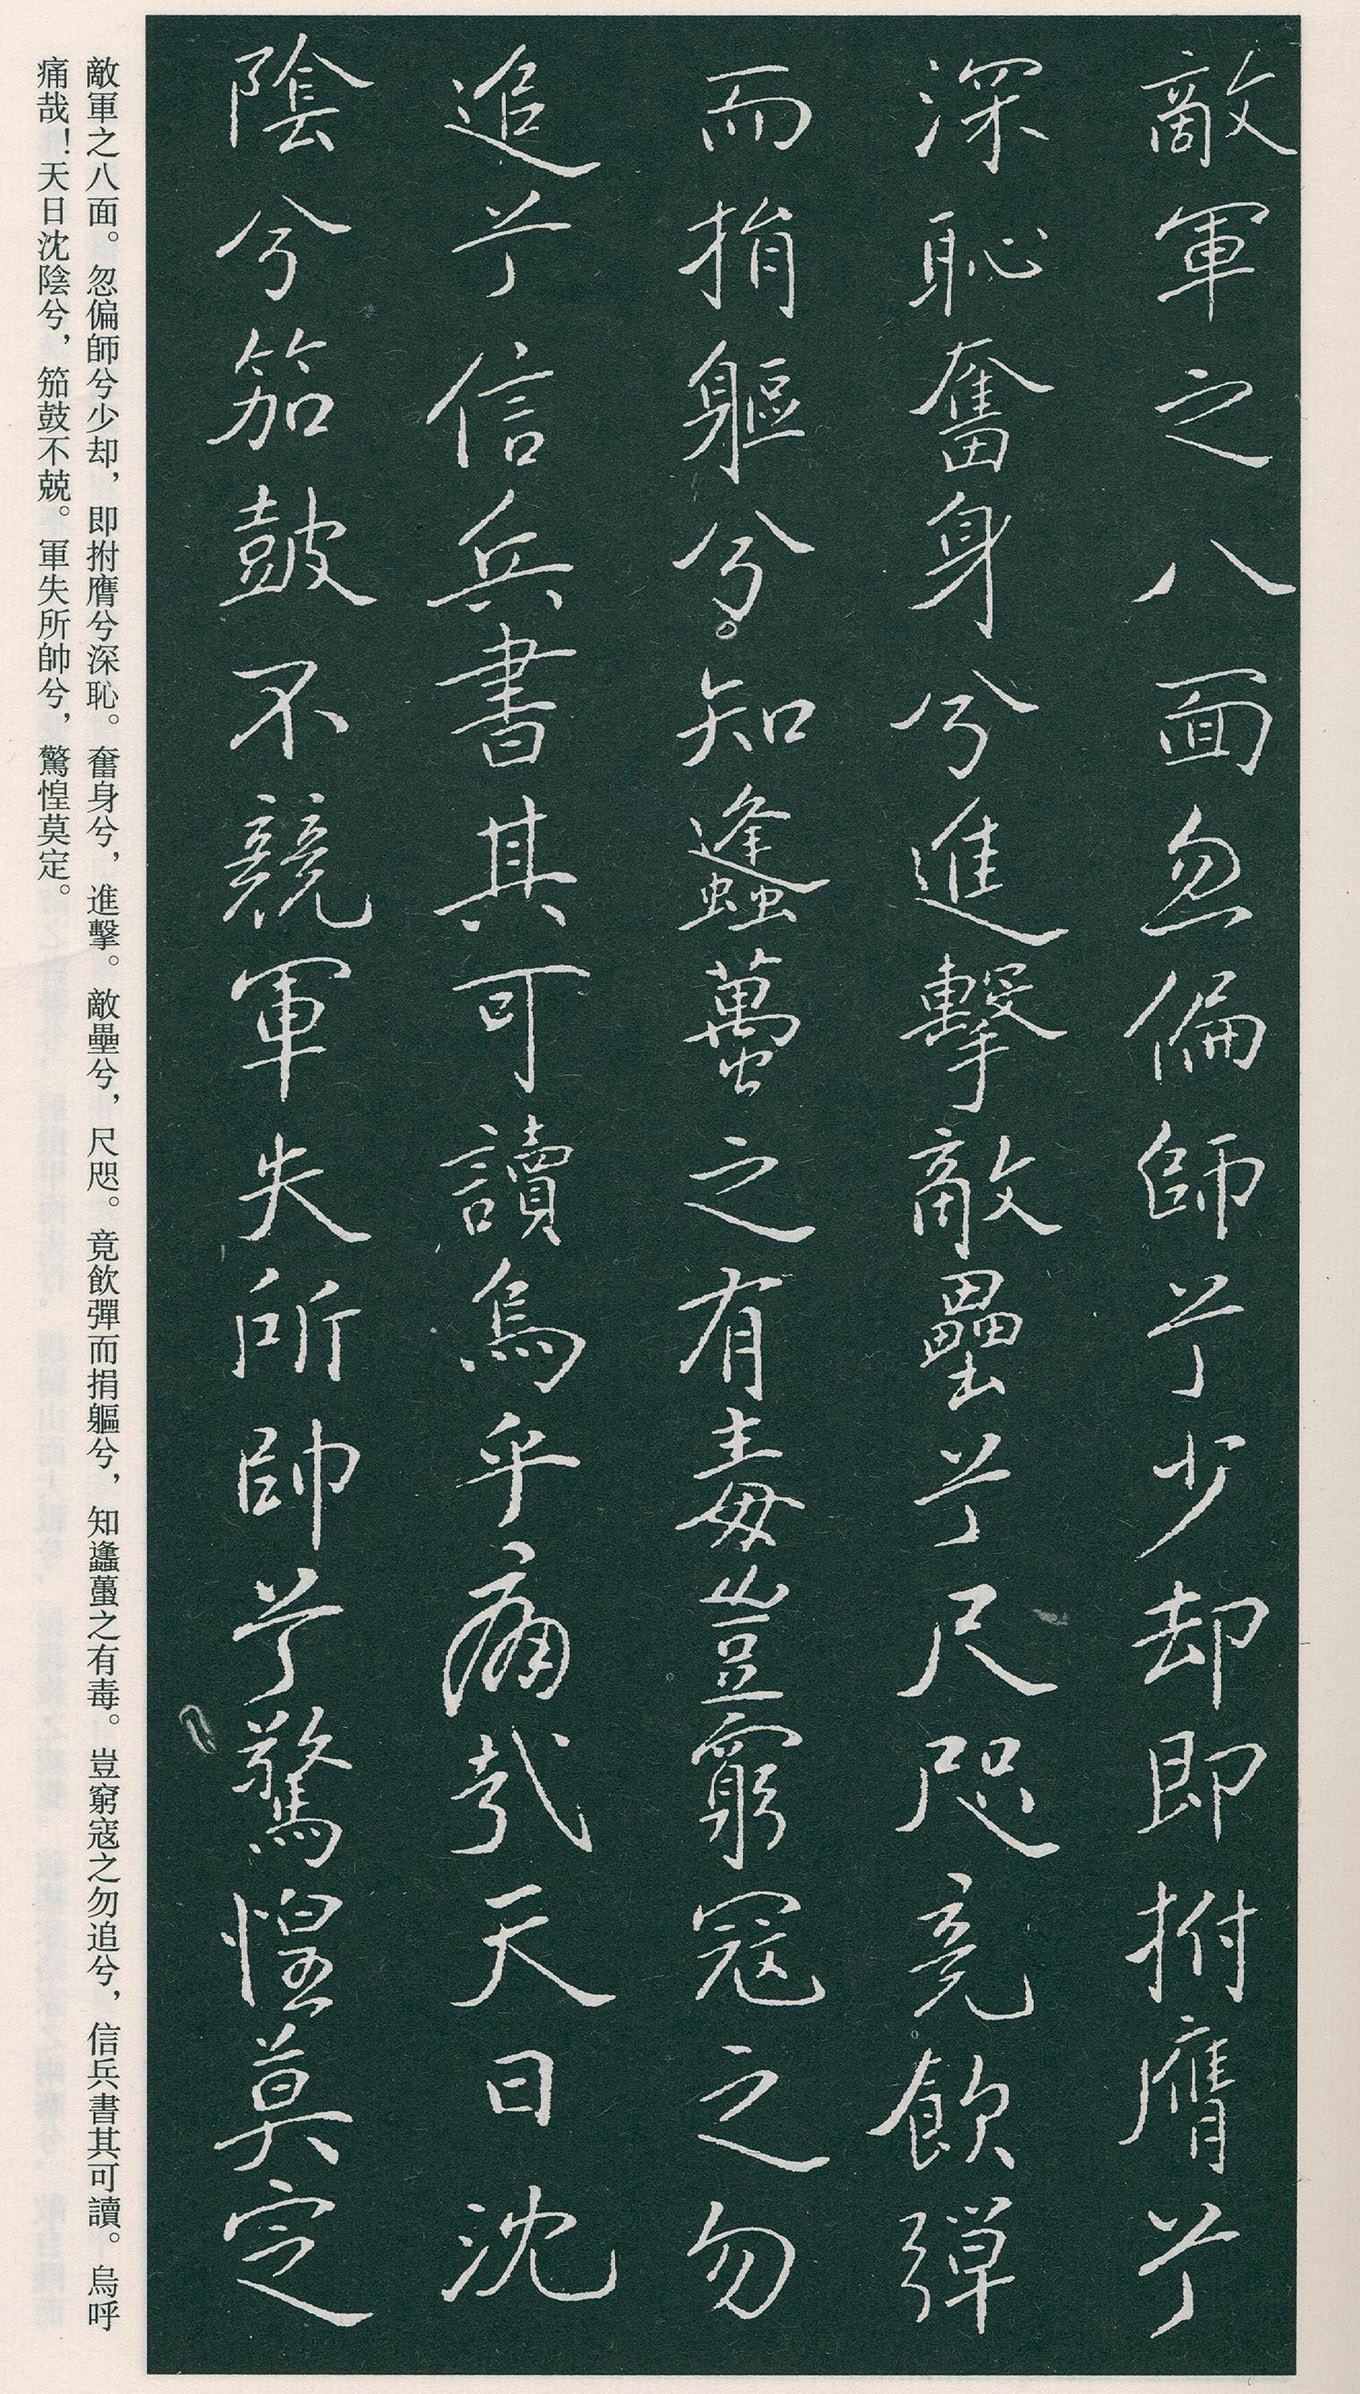 敵軍之八面忽偏師兮少却即拊膺兮
深恥奮身兮進擊敵壘兮尺咫竟飲彈
而捐軀兮知蠭蠆之有毒豈窮寇之勿
追兮信兵書其可讀烏乎痛哉天日沈
陰兮笳鼓不競軍失所帥兮驚惶莫定
敵軍之八面。忽偏師兮少却，即拊膺兮深恥。奮身兮，進擊。敵壘兮，尺咫。竟飲彈而捐軀兮，知蠭蠆之有毒。豈窮寇之勿追兮，信兵書其可讀。烏呼
痛哉！天日沈陰兮，笳鼓不競。軍失所帥兮，驚惶莫定。